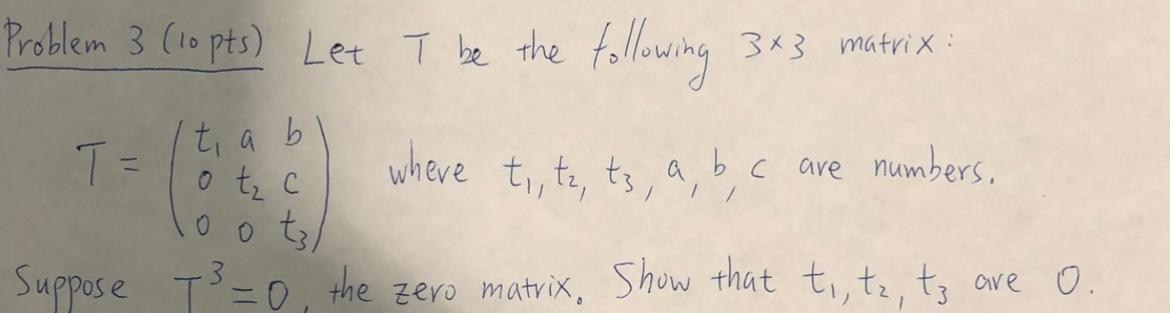 Problem 3 (10 pts) Let T be the following 3×3 matrix:
T = (t₁ a b
0 t₂ c
0 0 t₃) where t₁, t₂, t₃, a, b, c are numbers.
Suppose T³=0, the zero matrix. Show that t₁, t₂, t₃ are 0.